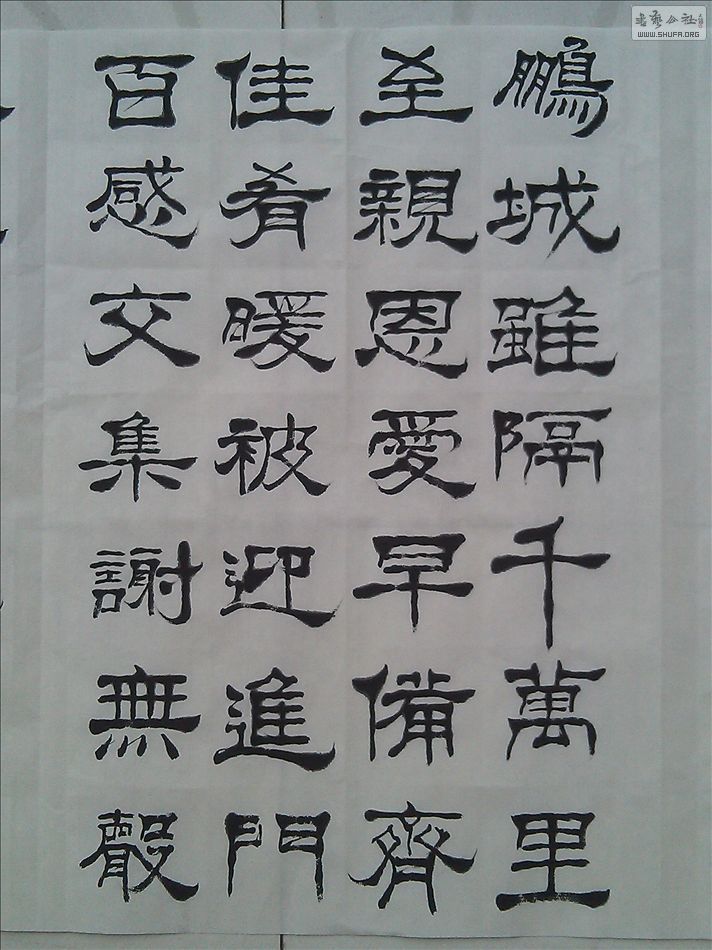 鵬城雖隔千萬里
至親恩愛早備齊
佳肴暖被迎進門
百感交集謝無聲
书艺公社
WWW.SHUFA.ORG